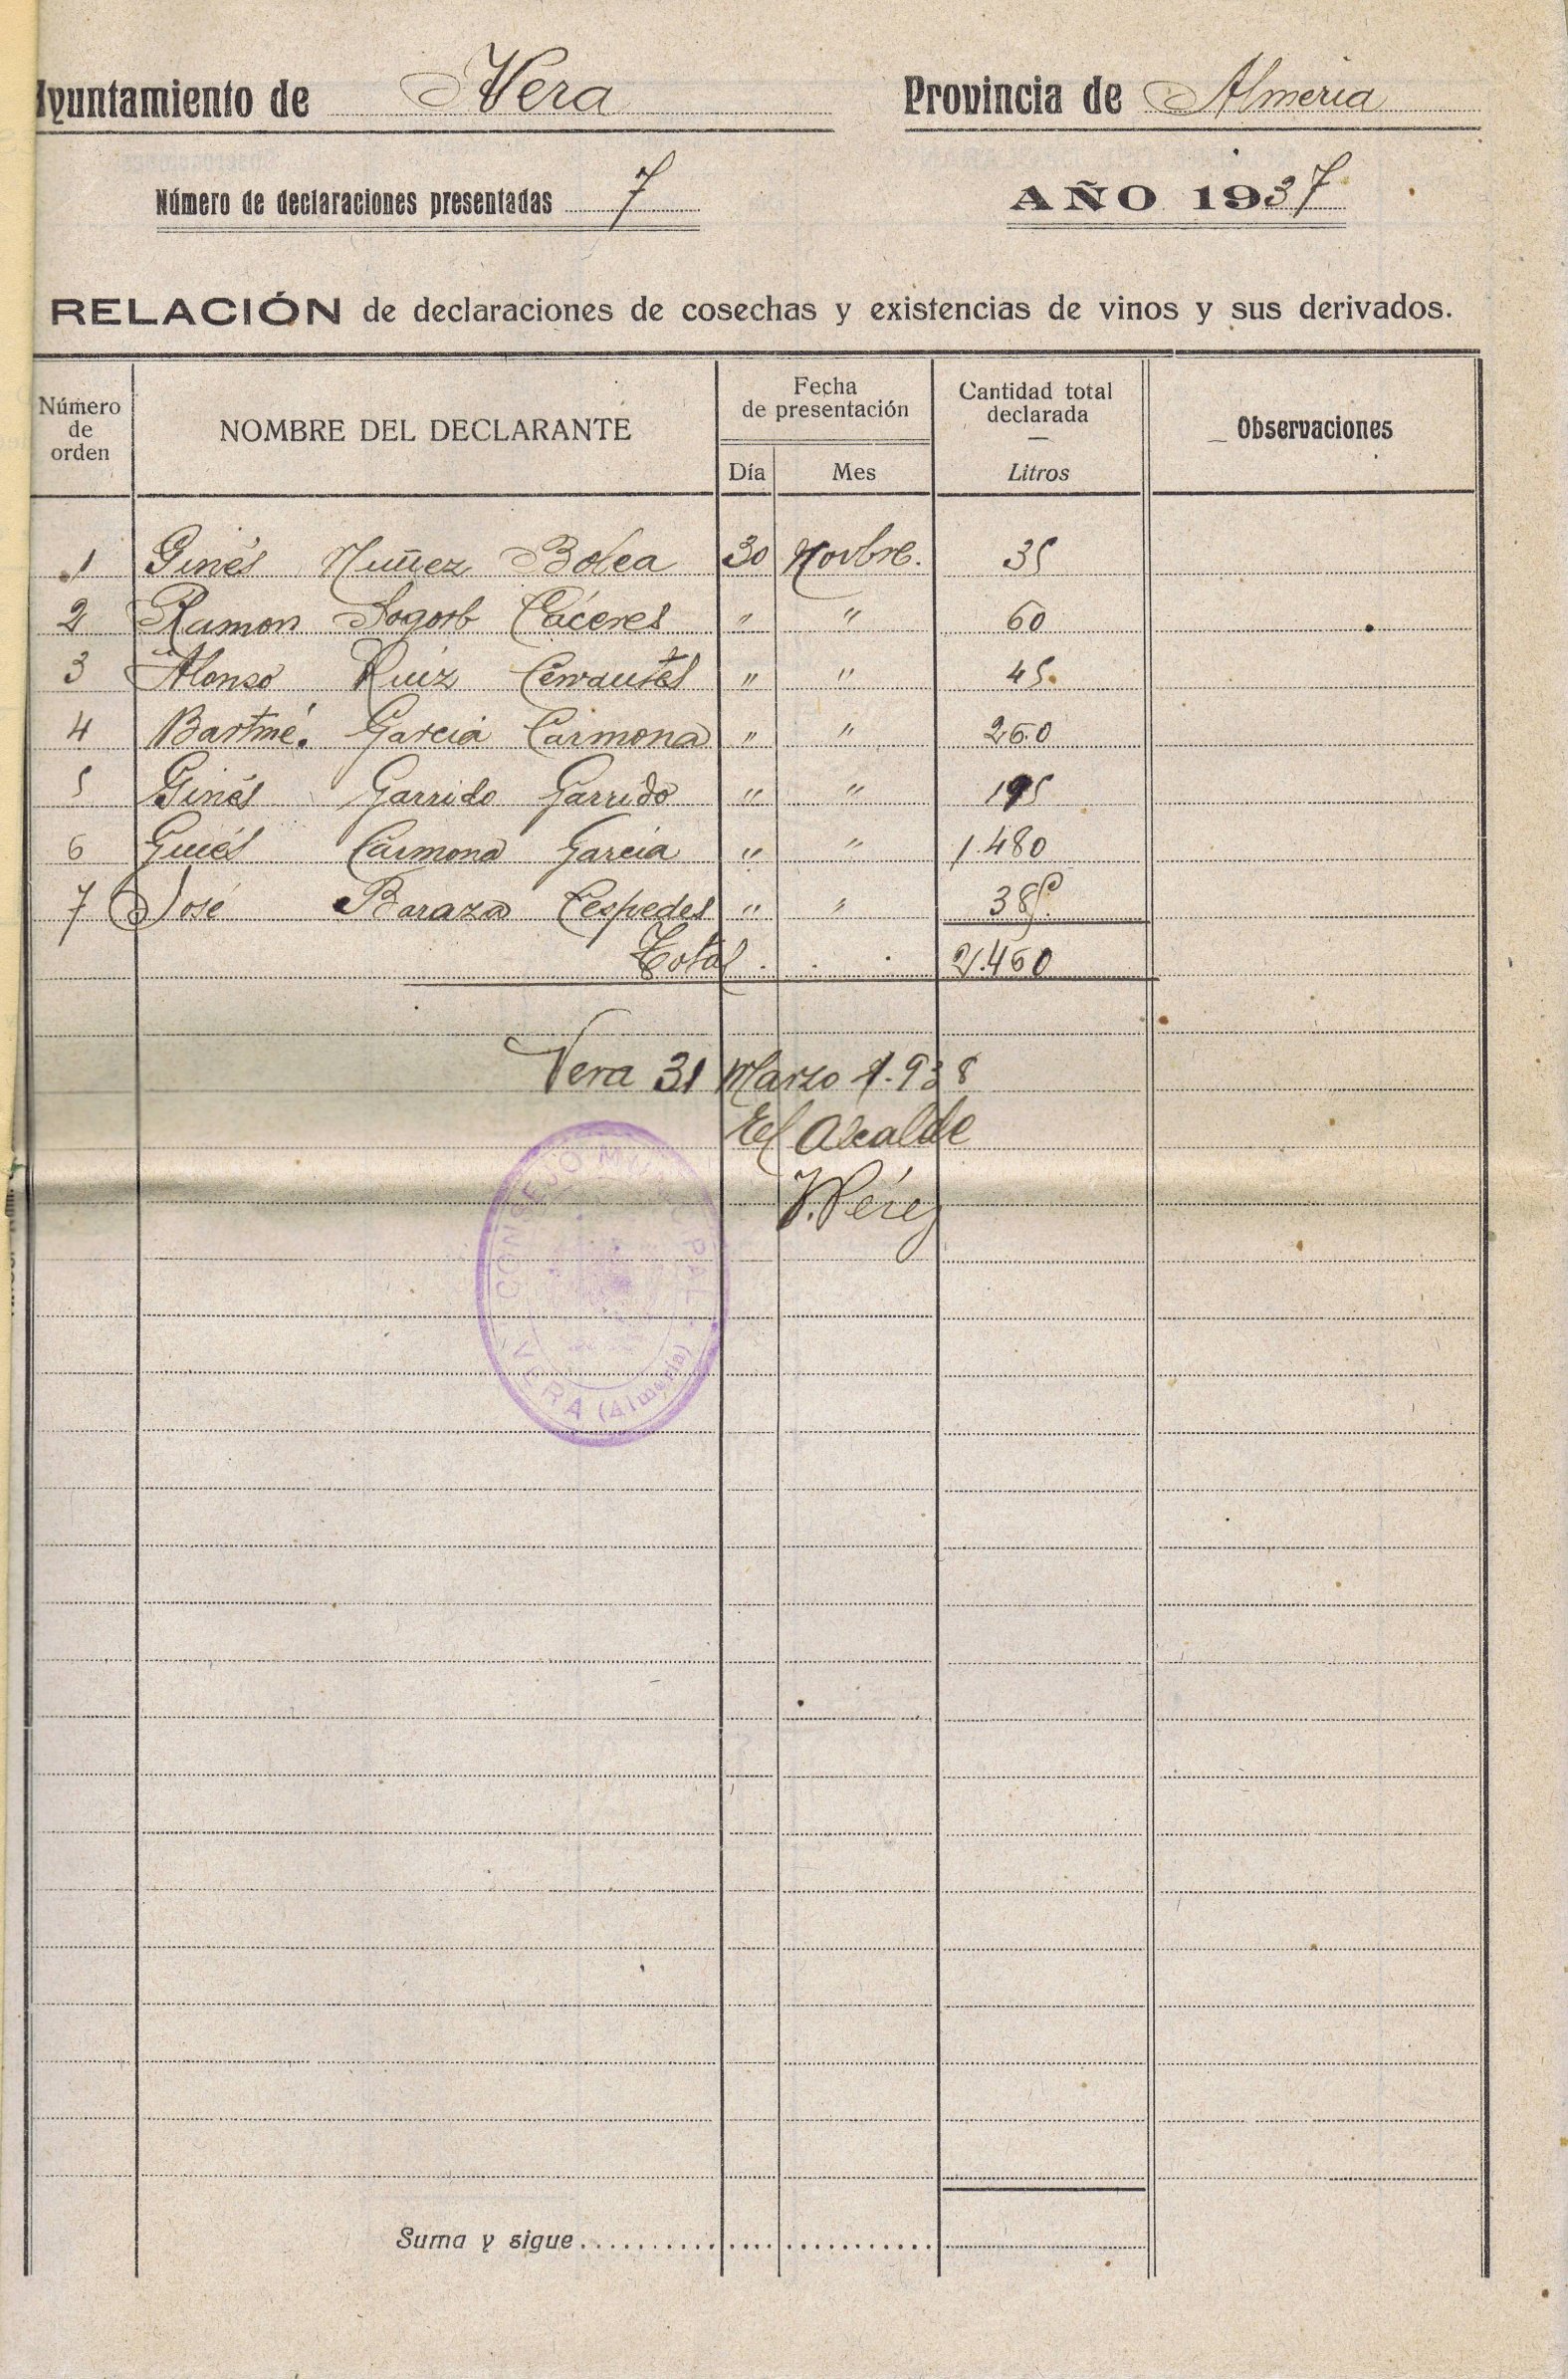 Ayuntamiento de Vera Provincia de Almeria
Número de declaraciones presentadas 7 AÑO 1937
RELACIÓN de declaraciones de cosechas y existencias de vinos y sus derivados.
Número de orden NOMBRE DEL DECLARANTE Fecha de presentación Día Mes Cantidad total declarada — Litros Observaciones
1 Ginés Nuñez Bolea 30 Novbre. 35
2 Ramon Sogorb Cáceres " " 60
3 Alonso Ruiz Cervantes " " 45
4 Bartmé. Garcia Carmona " " 260
5 Ginés Garrido Garrido " " 195
6 Ginés Carmona Garcia " " 1.480
7 José Baraza Cespedes " " 385
Total . . . 2.460
Vera 31 Marzo 1.938
El Alcalde
J. Pérez
CONSEJO MUNICIPAL
VERA (Almería)
Suma y sigue